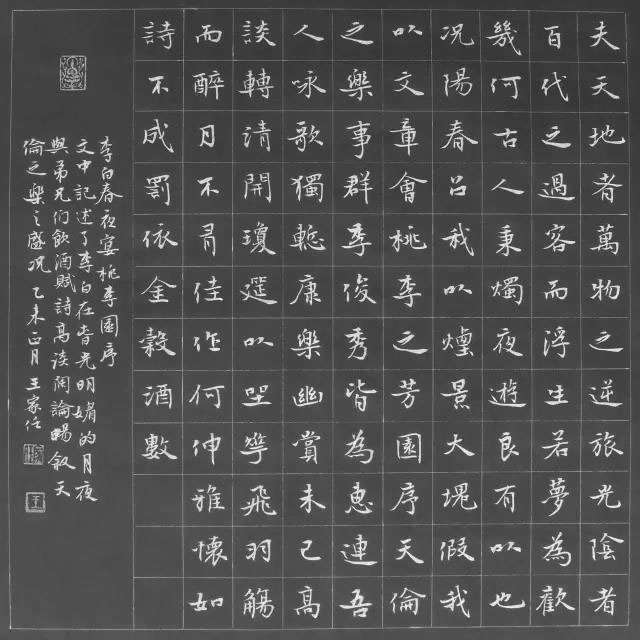 夫天地者萬物之逆旅光陰者
百代之過客而浮生若夢為歡
幾何古人秉燭夜遊良有以也
况陽春召我以煙景大塊假我
以文章會桃李之芳園序天倫
之樂事群季俊秀皆為惠連吾
人咏歌獨慙康樂幽賞未已高
談轉清開瓊筵以坐華飛羽觴
而醉月不有佳作何伸雅懷如
詩不成罰依金穀酒數
李白春夜宴桃李園序
文中記述了李白在春光明媚的月夜
與弟兄们飲酒賦詩高談闊論暢叙天
倫之樂之盛况 乙未正月 王家任